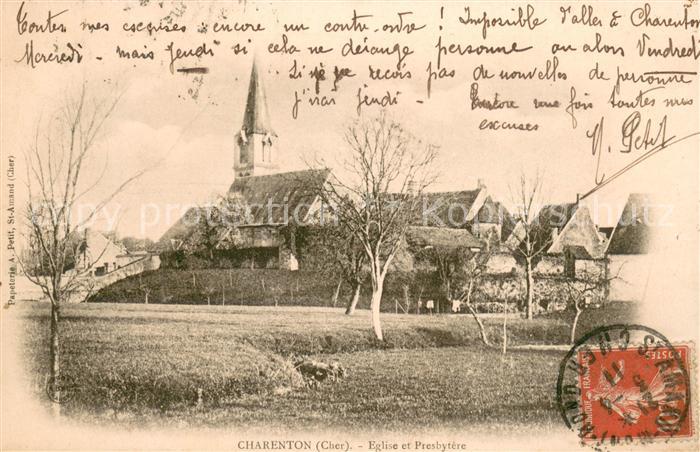 Toutes mes excuses - encore un contre-ordre! Impossible d'aller à Charenton
Mercredi - mais jeudi si cela ne dérange personne ou alors Vendredi
Si je ne reçois pas de nouvelles de personne
j'irai jeudi -
Encore une fois toutes mes
excuses
Petit
Papeterie A. Petit, St-Amand (Cher)
CHARENTON (Cher). - Eglise et Presbytère
POSTES